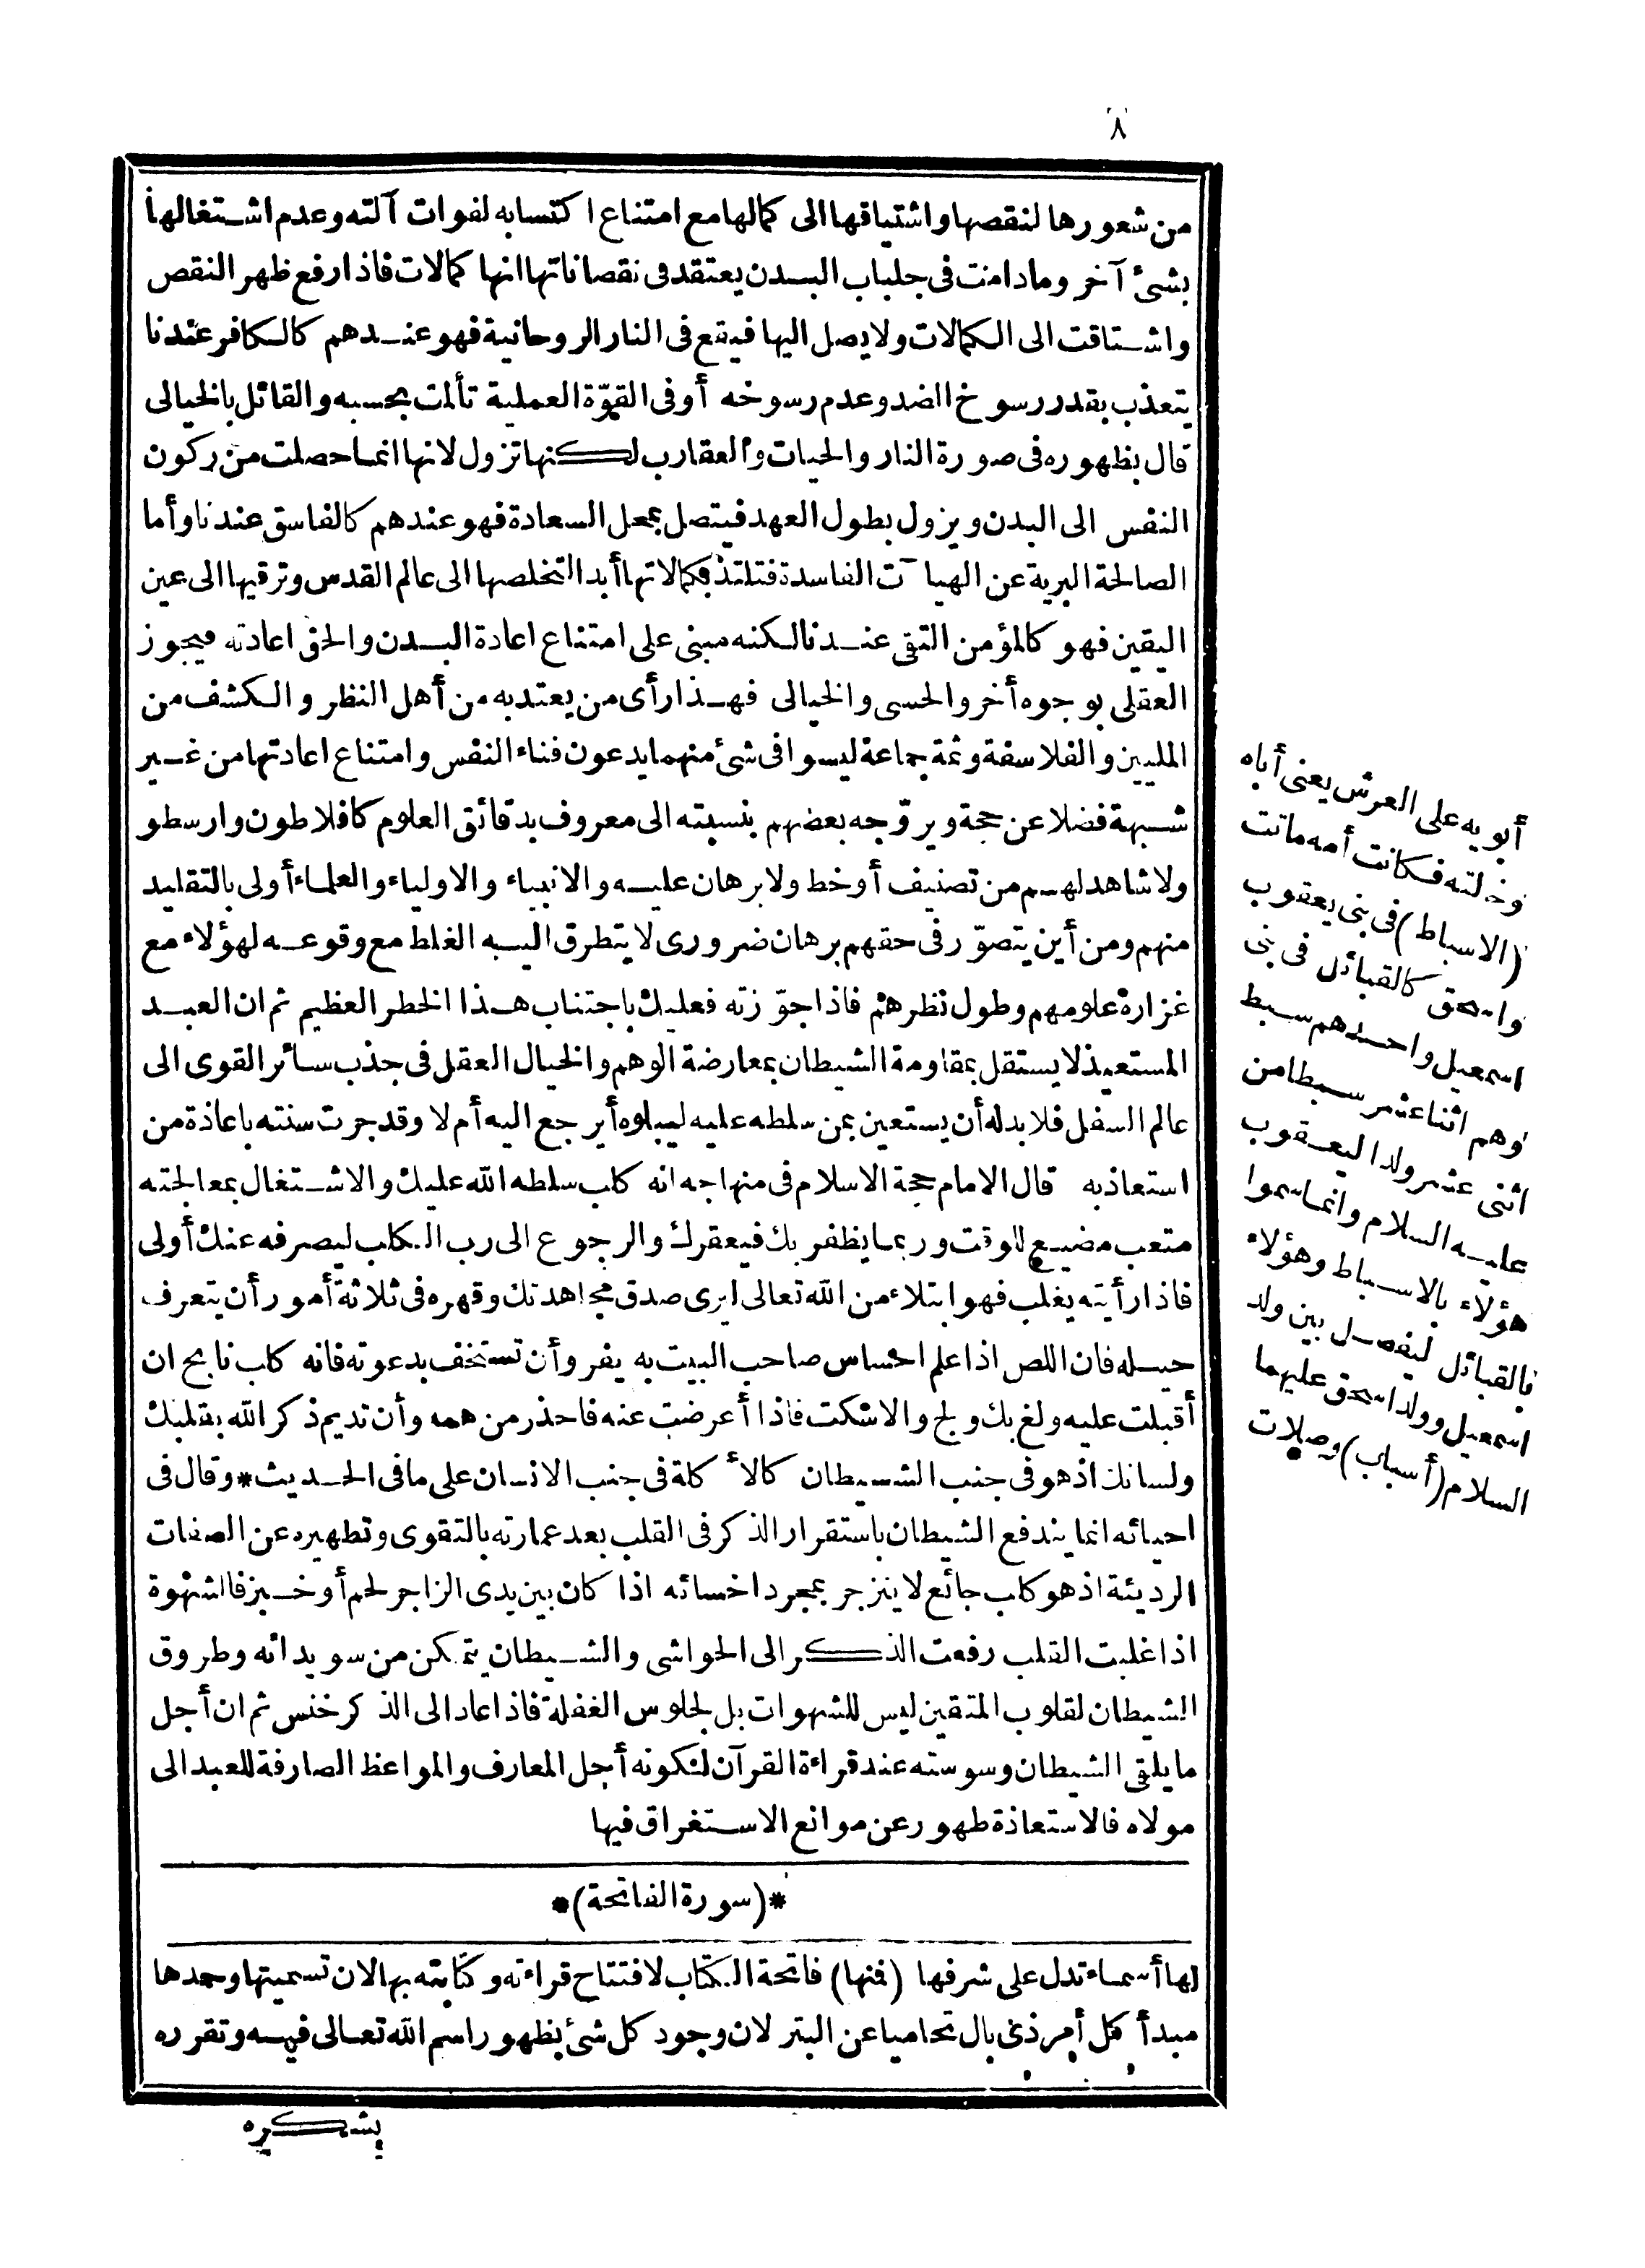 ٨
من شعورها لنقصها واشتياقها الى كمالها مع امتناع اكتسابه لفوات آلته وعدم اشتغالها
بشئ آخر وما دامت فى جلباب البدن يعتقد فى نقصاناتها انها كمالات فاذا رفع ظهر النقص
واشتاقت الى الكمالات ولا يصل اليها فيقع فى النار الروحانية فهو عندهم كالكافر عندنا
يتعذب بقدر رسوخ الضد وعدم رسوخه أو فى القوّة العملية تألمت بحسبه والقائل بالخيالى
قال بظهوره فى صورة النار والحيات والعقارب لكنها تزول لانها انما حصلت من ركون
النفس الى البدن ويزول بطول العهد فيتصل بمحل السعادة فهو عندهم كالفاسق عندنا وأما
الصالحة البرية عن الهيآت الفاسدة فتلتذ بكمالاتها أبدا لتخلصها الى عالم القدس وترقيها الى عين
اليقين فهو كالمؤمن التقى عندنا لكنه مبنى على امتناع اعادة البدن والحق اعادته فيجوز
العقلى بوجوه أخر والحسى والخيالى فهذا رأى من يعتد به من أهل النظر والكشف من
المليين والفلاسفة وثمة جماعة ليسوا فى شئ منهما يدعون فناء النفس وامتناع اعادتها من غير
شبهة فضلا عن حجة ويروّجه بعضهم بنسبته الى معروف بدقائق العلوم كافلاطون وارسطو
ولا شاهد لهم من تصنيف أو خط ولا برهان عليه والانبياء والاولياء والعلماء أولى بالتقليد
منهم ومن أين يتصوّر فى حقهم برهان ضرورى لا يتطرق اليه الغلط مع وقوعه لهؤلاء مع
غزارة علومهم وطول نظرهم فاذا جوّزته فعليك باجتناب هذا الخطر العظيم ثم ان العبد
المستعيذ لا يستقل بمقاومة الشيطان بمعارضة الوهم والخيال العقل فى جذب سائر القوى الى
عالم السفل فلا بد له أن يستعين بمن سلطه عليه ليبلوه أيرجع اليه أم لا وقد جرت سنته باعاذة من
استعاذ به قال الامام حجة الاسلام فى منهاجه انه كلب سلطه الله عليك والاشتغال بمعالجته
متعب مضيع للوقت وربما يظفر بك فيعقرك والرجوع الى رب الكلب ليصرفه عنك أولى
فاذا رأيته يغلب فهو ابتلاء من الله تعالى ليرى صدق مجاهدتك وقهره فى ثلاثة أمور أن يتعرف
حيله فان اللص اذا علم احساس صاحب البيت به يفر وأن تستخف بدعوته فانه كلب نابح ان
أقبلت عليه ولغ بك ولج والا سكت فاذا أعرضت عنه فاحذر من همه وأن تديم ذكر الله بقلبك
ولسانك اذ هو فى جنب الشيطان كالأكلة فى جنب الانسان على ما فى الحديث * وقال فى
احيائه انما يندفع الشيطان باستقرار الذكر فى القلب بعد عمارته بالتقوى وتطهيره عن الصفات
الرديئة اذ هو كلب جائع لا ينزجر بمجرد اخسائه اذا كان بين يدى الزاجر لحم أو خبز فالشهوة
اذا غلبت القلب رفعت الذكر الى الحواشى والشيطان يتمكن من سويدائه وطروق
الشيطان لقلوب المتقين ليس للشهوات بل لجلوس الغفلة فاذا عاد الى الذكر خنس ثم ان أجل
ما يلقى الشيطان وسوسته عند قراءة القرآن لكونه أجل المعارف والمواعظ الصارفة للعبد الى
مولاه فالاستعاذة طهور عن موانع الاستغراق فيها
*(سورة الفاتحة)*
لها أسماء تدل على شرفها (فنها) فاتحة الكتاب لافتتاح قراءته وكتابته بها لان تسميتها وحمدها
مبدأ كل أمر ذى بال تحاميا عن البتر لان وجود كل شئ بظهور اسم الله تعالى فيه وتقرره
بشكره
أبويه على العرش يعنى أباه
وخالته فكانت أمه ماتت
(الاسباط) فى بنى يعقوب
واسحق كالقبائل فى بنى
اسمعيل واحدهم سبط
وهم اثنا عشر سبطا من
اثنى عشر ولدا ليعقوب
عليه السلام وانما سموا
هؤلاء بالاسباط وهؤلاء
بالقبائل ليفصل بين ولد
اسمعيل وولد اسحق عليهما
السلام (أسباب) وصلات